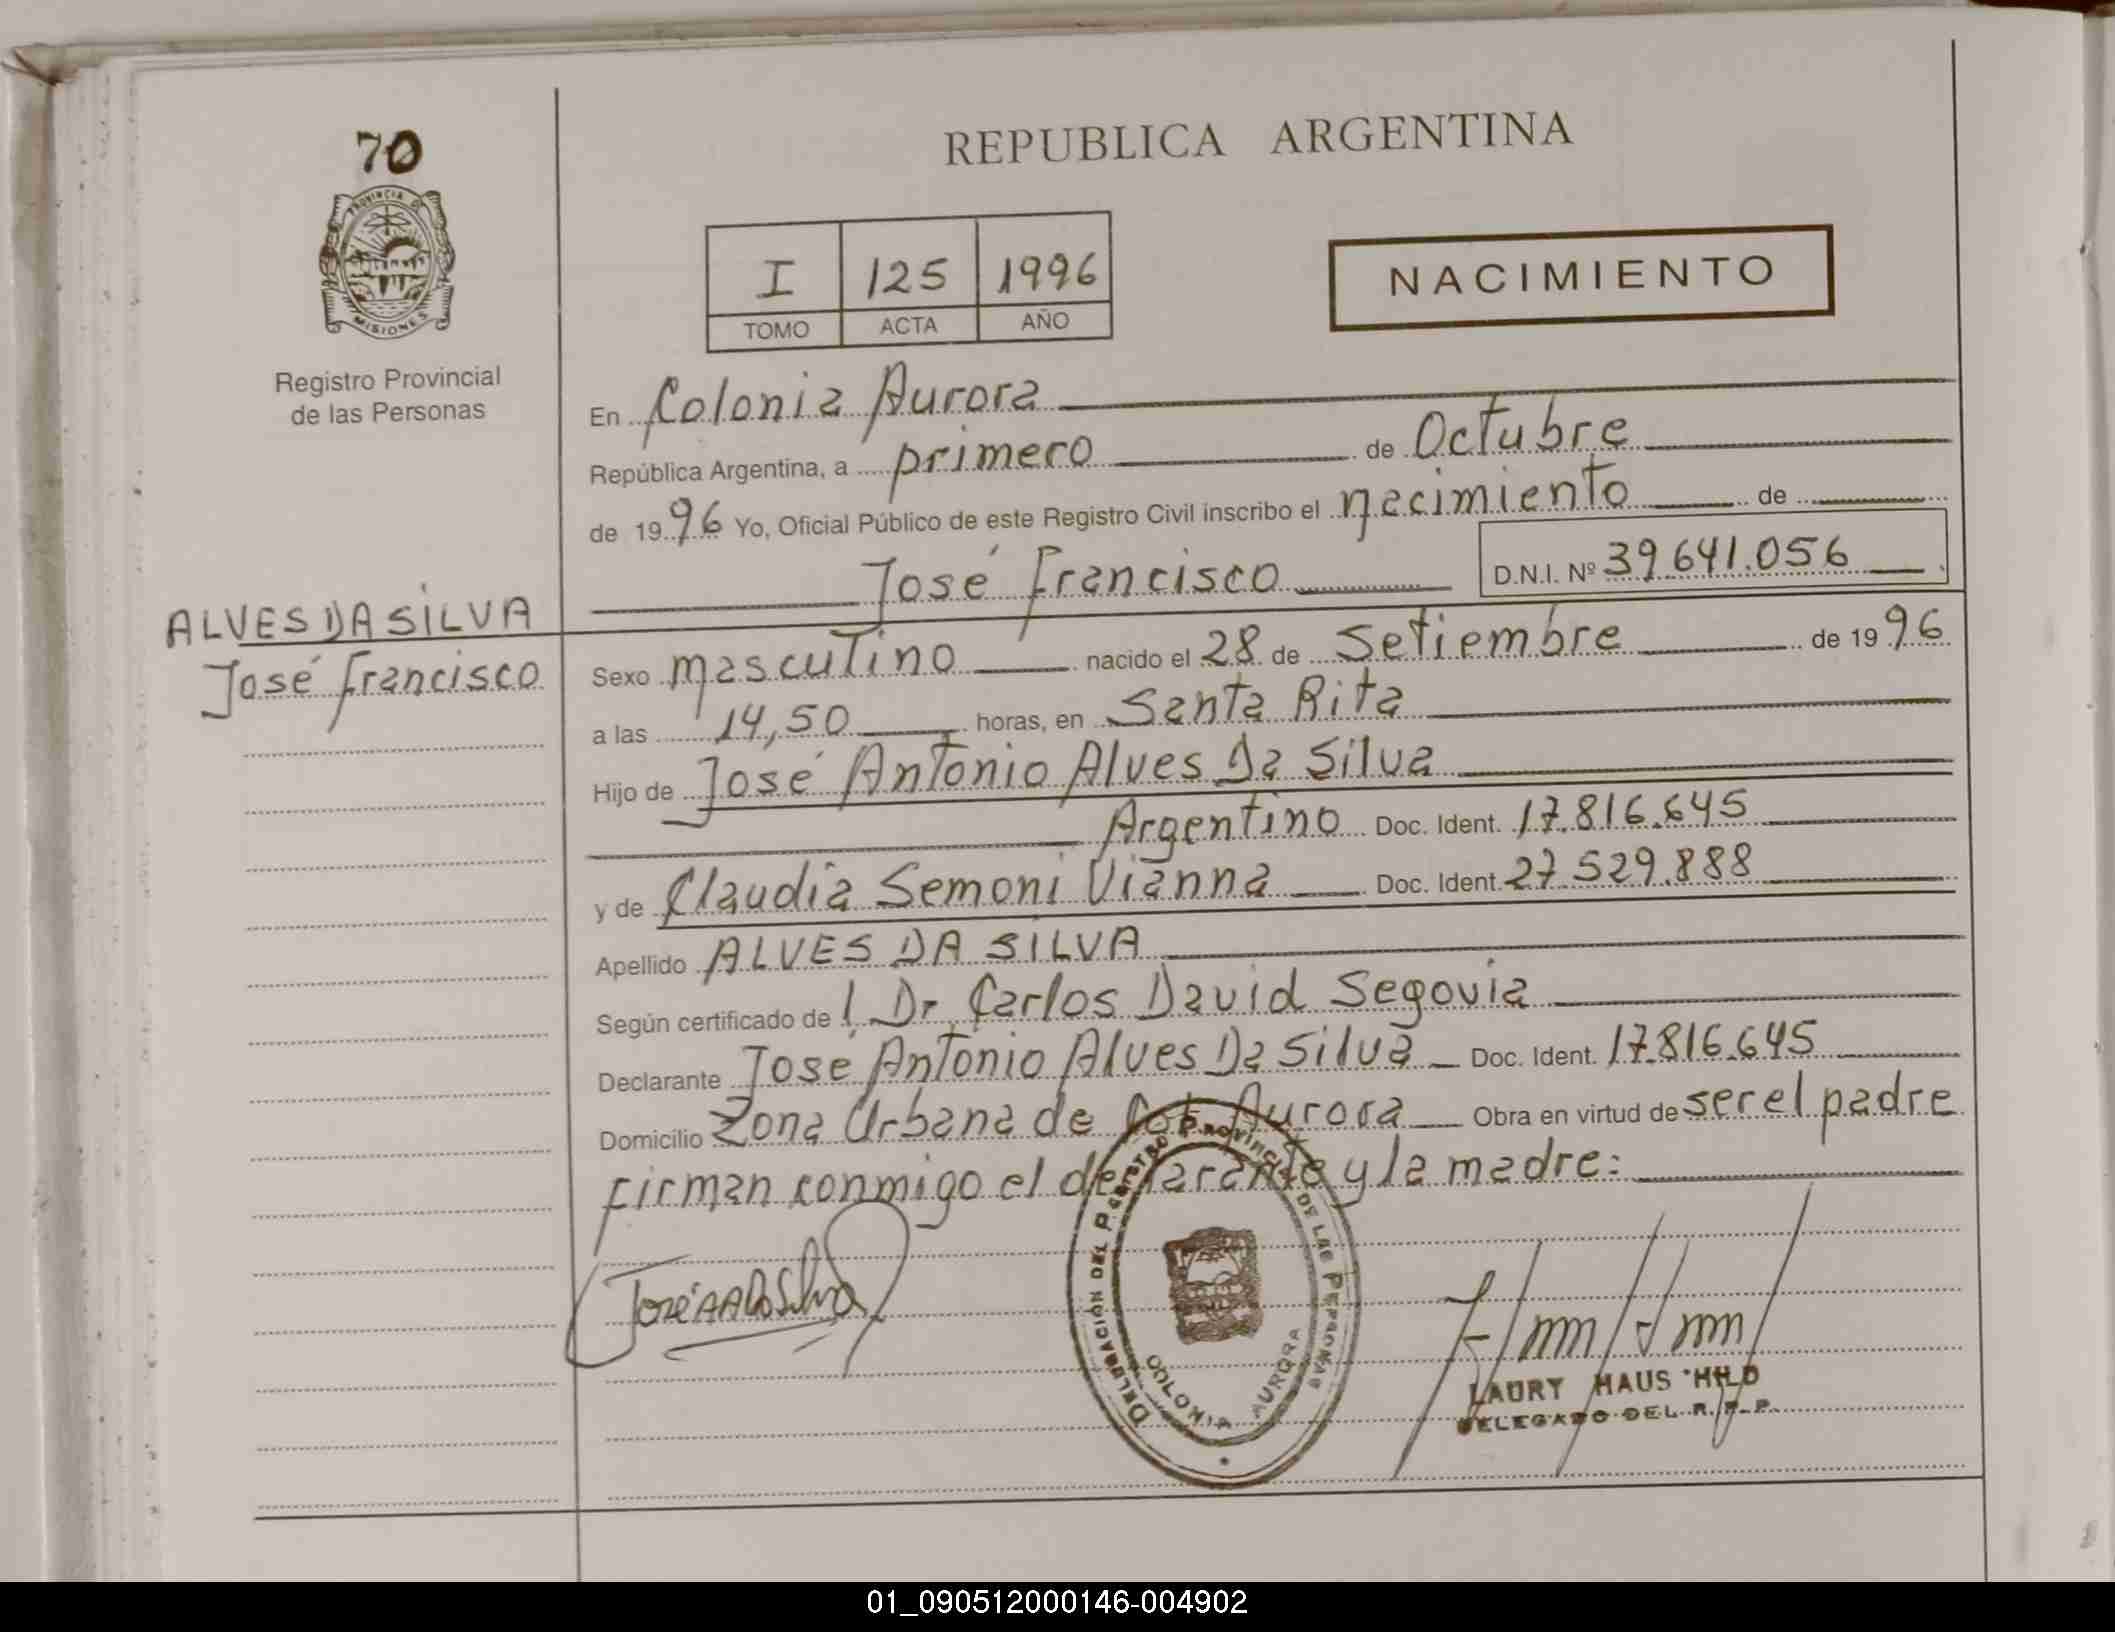 70
PROVINCIA DE
MISIONES
Registro Provincial
de las Personas
ALVES DA SILVA
José Francisco
REPUBLICA ARGENTINA
I 125 1996
TOMO ACTA AÑO
NACIMIENTO
En Colonia Aurora
República Argentina, a primero de Octubre
de 1996 Yo, Oficial Público de este Registro Civil inscribo el nacimiento de
José Francisco D.N.I. Nº 39.641.056
Sexo masculino nacido el 28 de Setiembre de 1996
a las 14,50 horas, en Santa Rita
Hijo de José Antonio Alves Da Silva
Argentino Doc. Ident. 17.816.645
y de Claudia Semoni Vianna Doc. Ident. 27.529.888
Apellido ALVES DA SILVA
Según certificado de Dr. Carlos David Segovia
Declarante José Antonio Alves Da Silva Doc. Ident. 17.816.645
Domicilio Zona Urbana de Col. Aurora Obra en virtud de ser el padre
firman conmigo el declarante y la madre:
José A A Da Silva
DELEGACIÓN DEL REGISTRO PROVINCIAL DE LAS PERSONAS
COLONIA AURORA
LAURY HAUS HILD
DELEGADO DEL R. P. P.
01_090512000146-004902